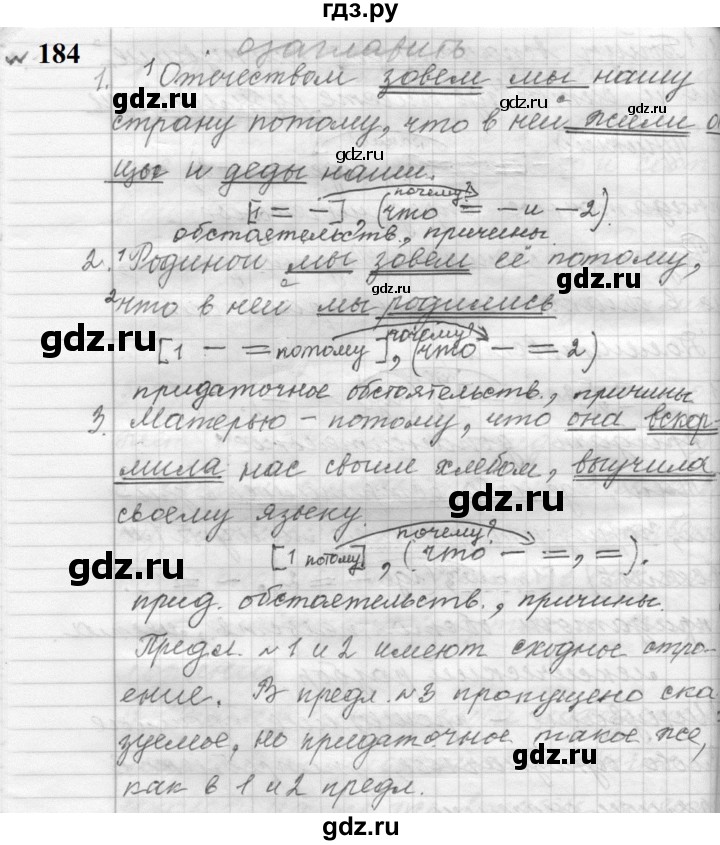 гдз.ру
184 озаглавить
1. ¹Отечеством зовем мы нашу
страну потому, что в ней жили о
цы и деды наши.
почему?
[1 = –], (что = – и – 2).
обстоятельств., причины.
2. ¹Родиной мы зовем её потому,
²что в ней мы родились
почему?
[1 – = потому], (что – = 2)
придаточное обстоятельств., причины
3. Матерью – потому, что она вскор-
мила нас своим хлебом, выучила
своему языку.
почему?
[1 потому], (что – =, =).
прид. обстоятельств., причины.
Предл. №1 и 2 имеют сходные стро-
ение. В предл. №3 пропущено ска
зуемое, но придаточное такое же,
как в 1 и 2 предл.
gdz.ru
gdz.ru
gdz.ru
gdz.ru
gdz.ru
gdz.ru
gdz.ru
gdz.ru
gdz.ru
gdz.ru
gdz.ru
gdz.ru
gdz.ru